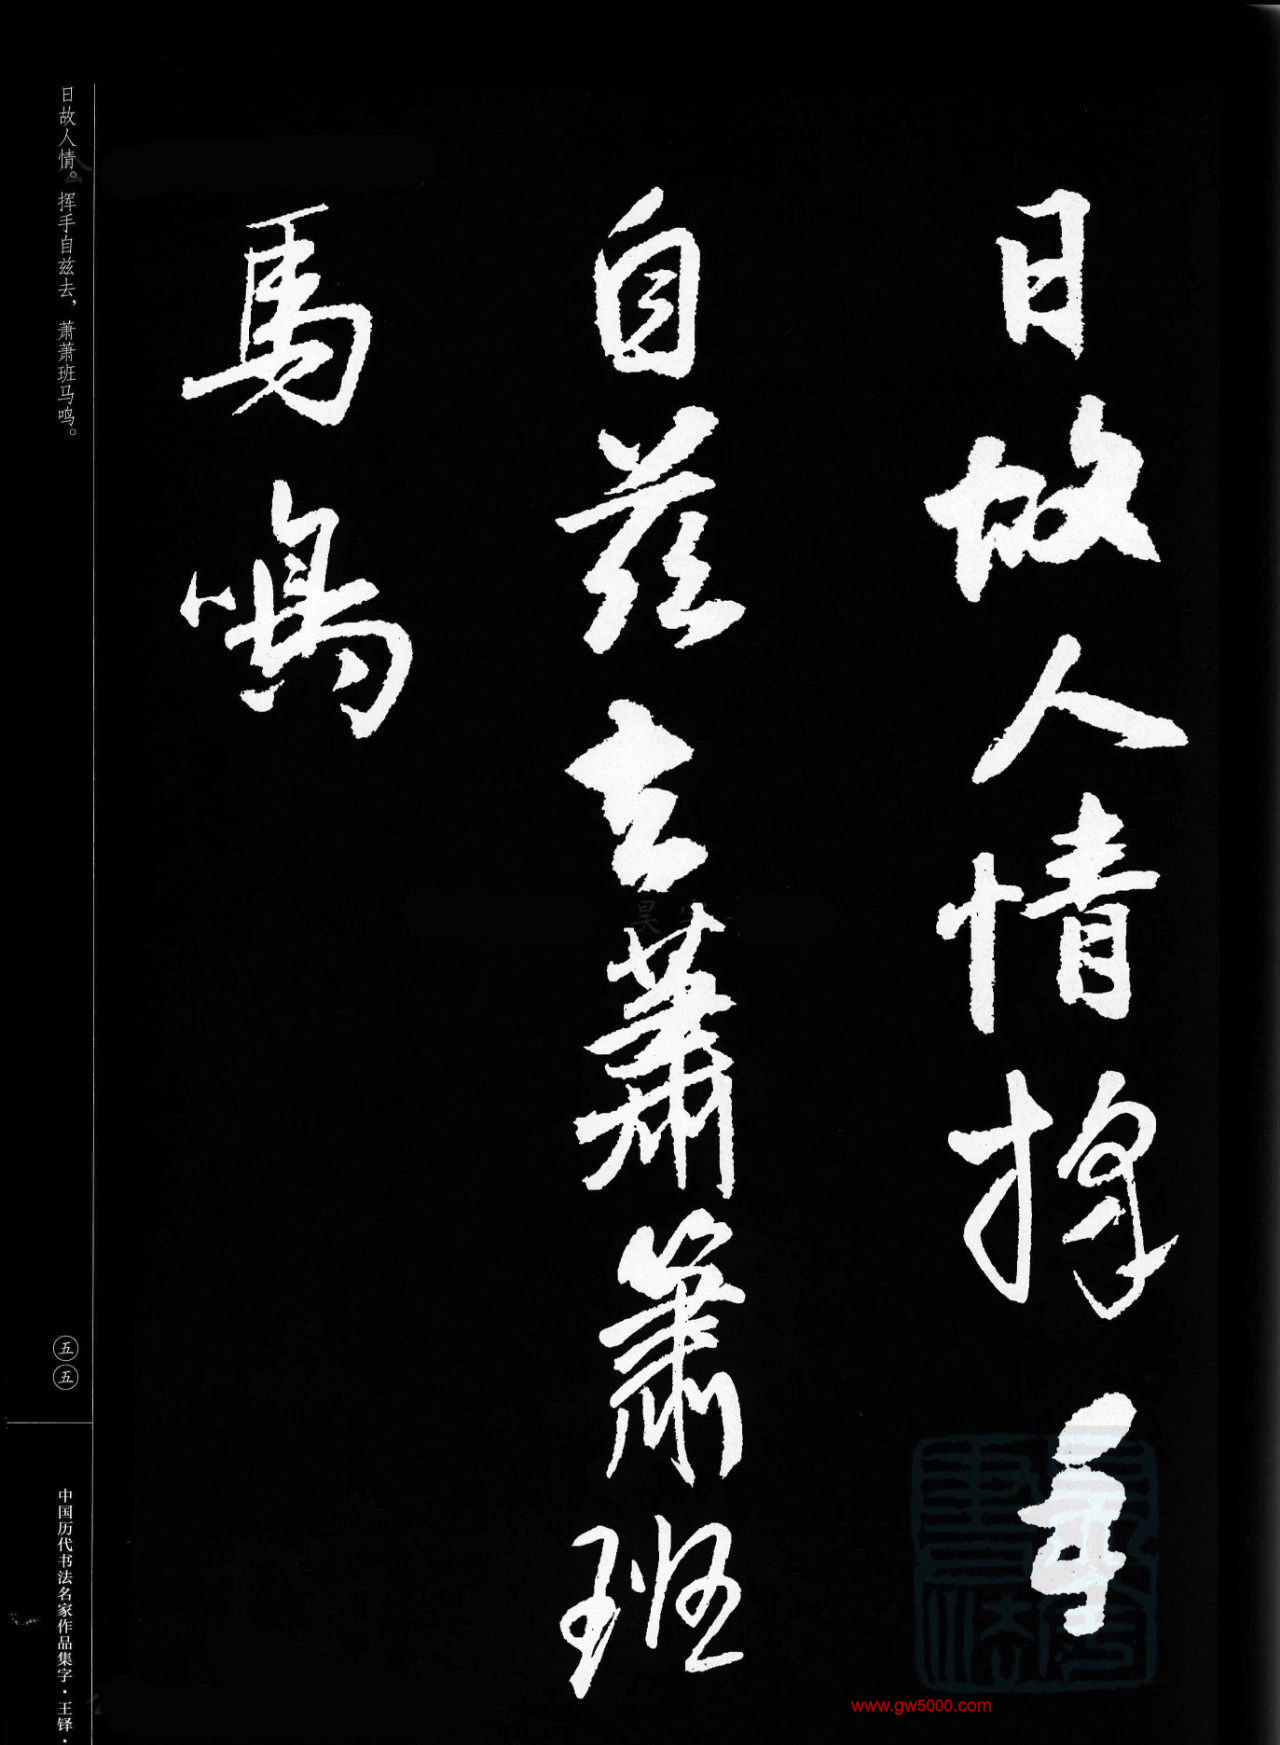 日故人情揮手
自茲去蕭蕭班
馬鳴
日故人情。挥手自兹去，萧萧班马鸣。
五五
中国历代书法名家作品集字·王铎·
www.gw5000.com